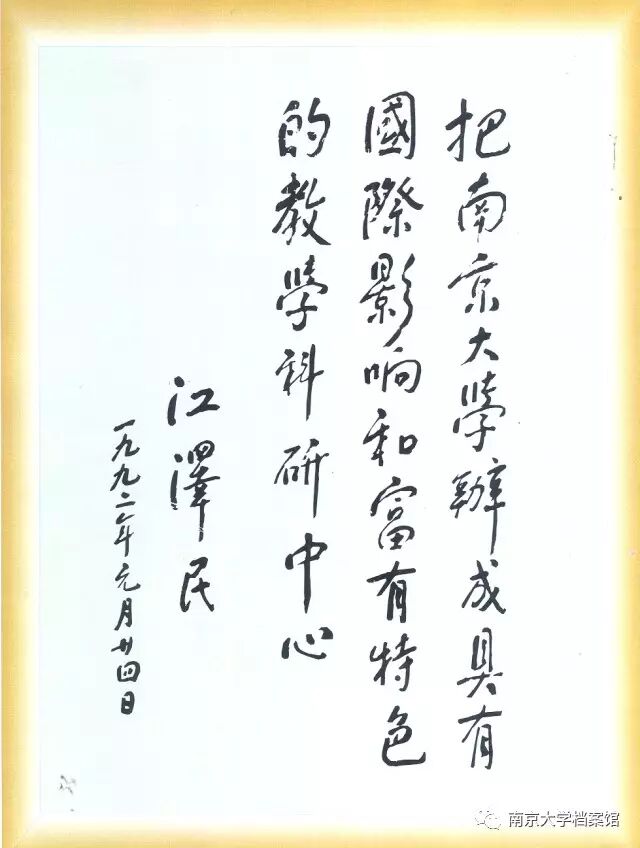 把南京大學辦成具有
國際影响和富有特色
的教學科研中心
江澤民
一九九二年元月廿四日
南京大学档案馆